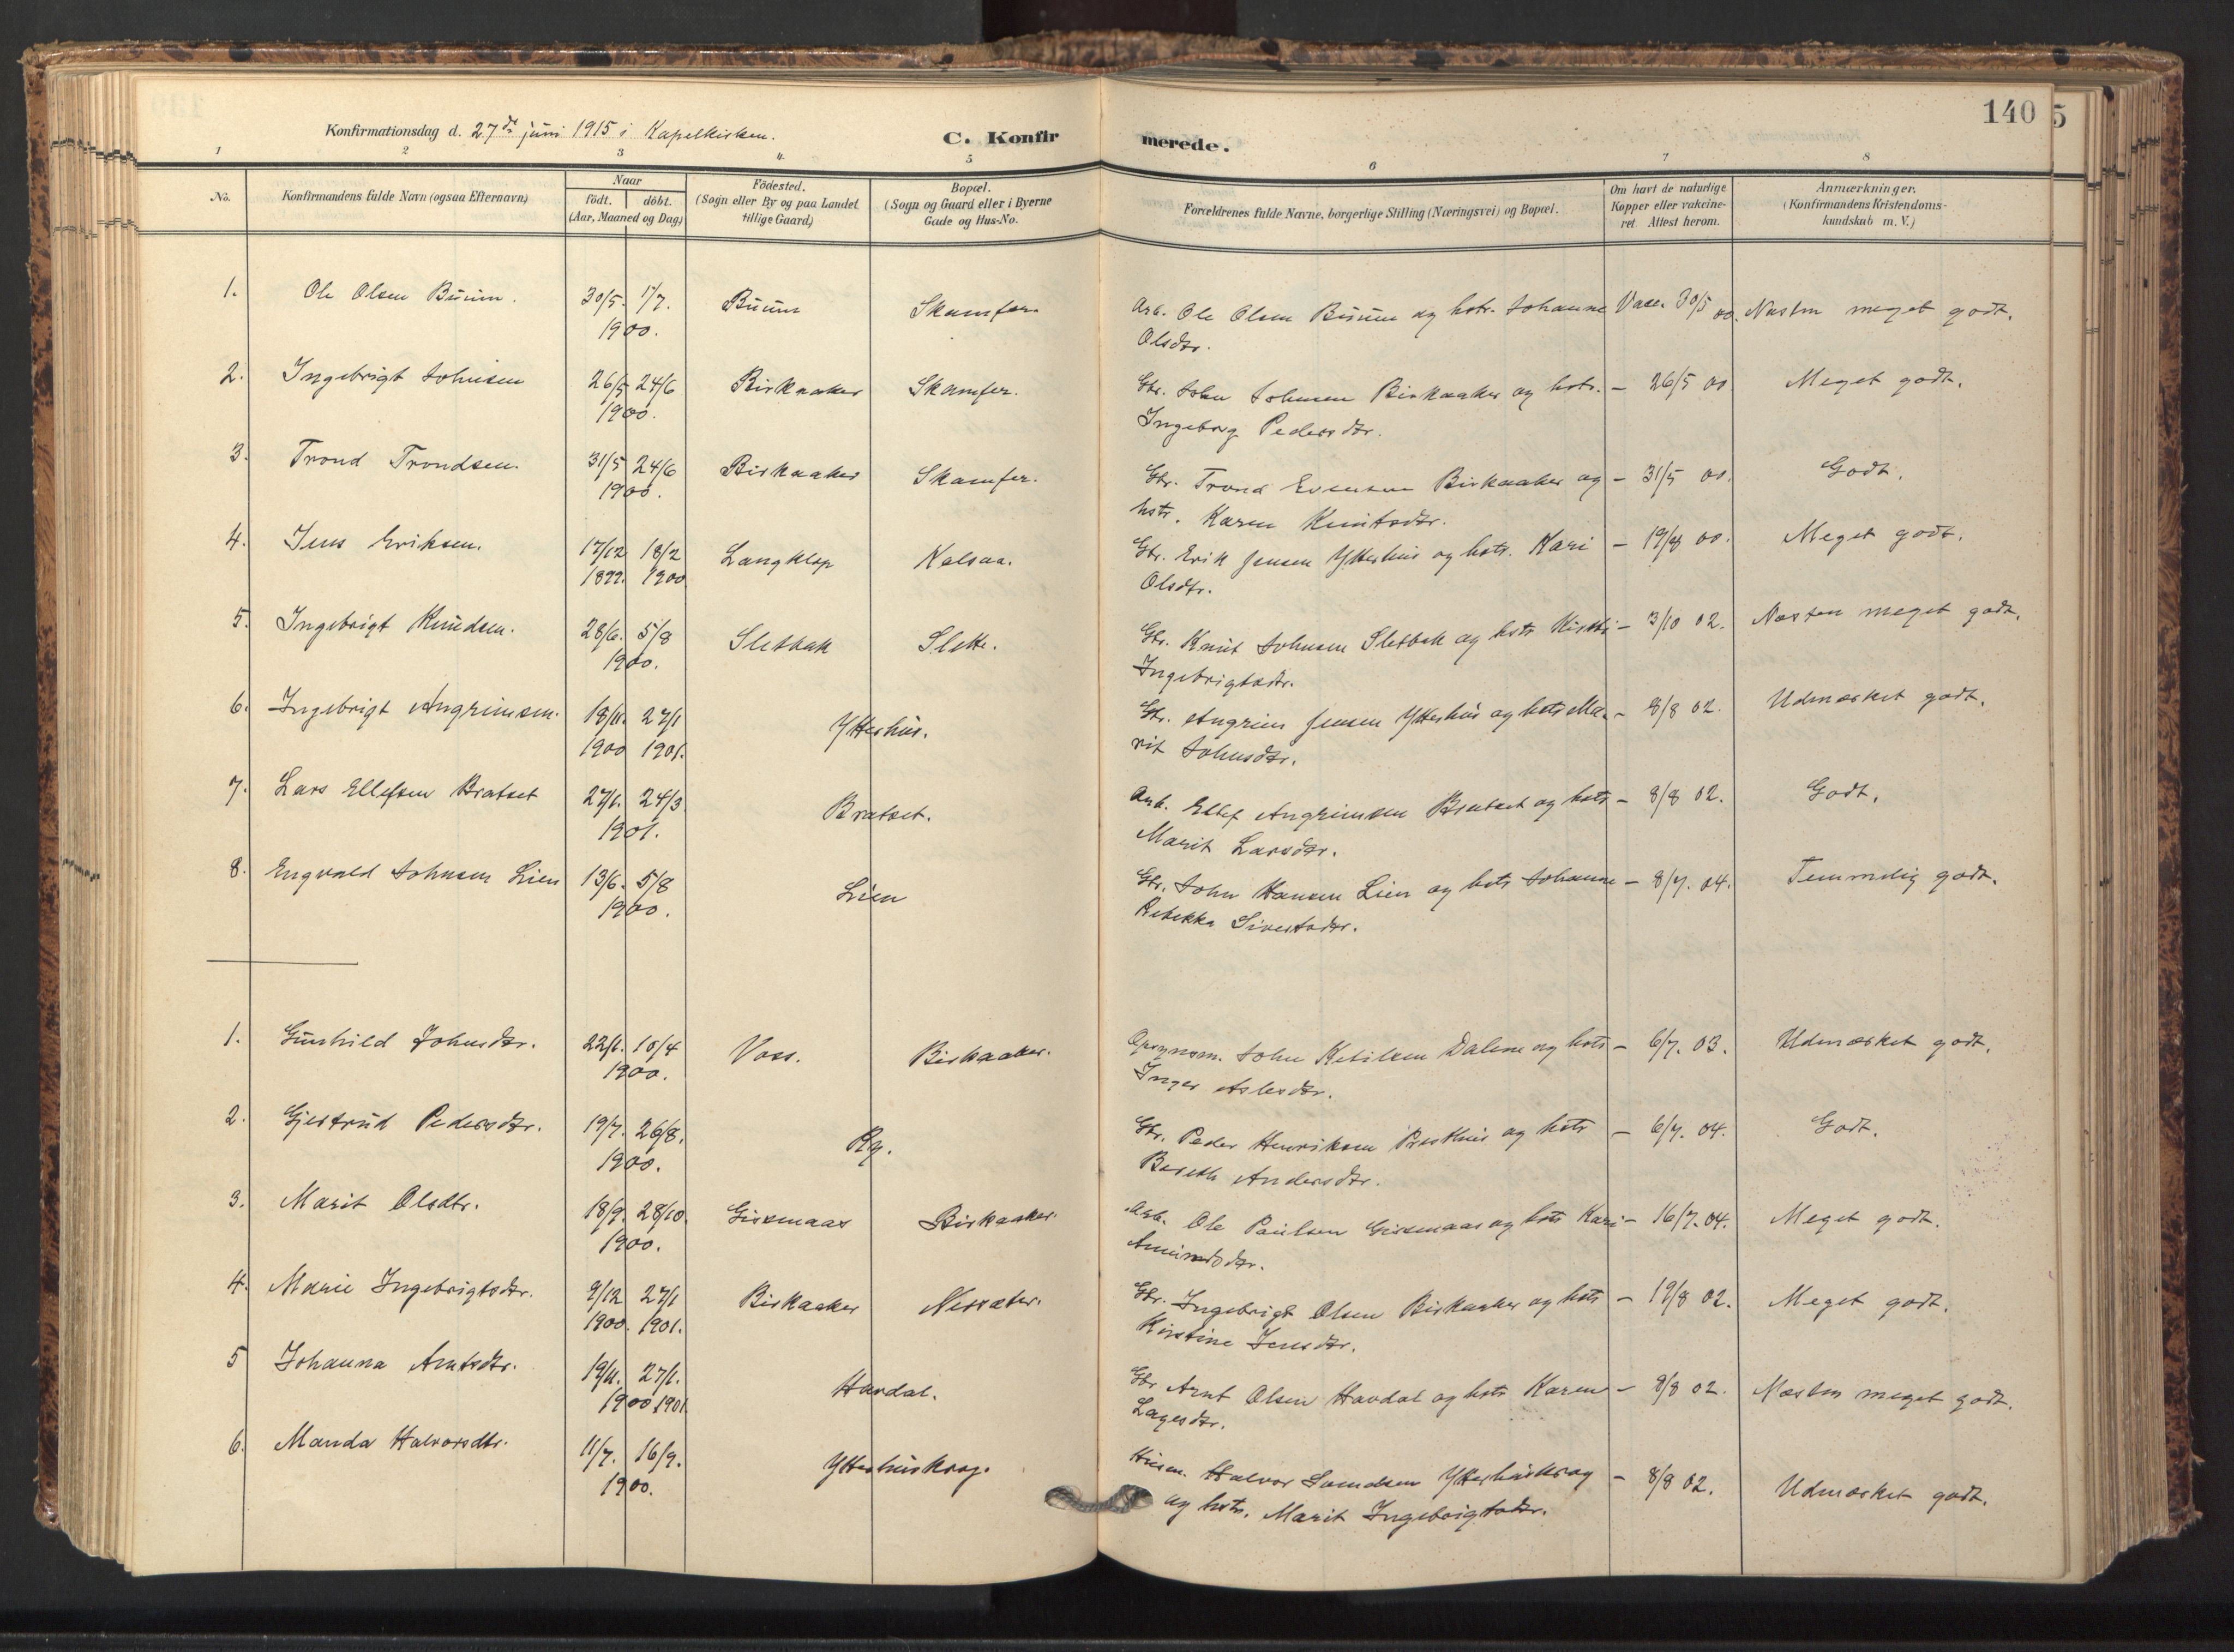 140
5
Konfirmationsdag d. 27de juni 1915 i Kapelkirken.
C. Konfirmerede.
1 2 3 4. 5 6 7 8
No.
Konfirmandens fulde Navn (ogsaa Efternavn)
Naar
födt. döbt.
(Aar, Maaned og Dag)
Födested.
(Sogn eller By og paa Landet
tillige Gaard)
Bopæl.
(Sogn og Gaard eller i Byerne
Gade og Hus-No.
Forældrenes fulde Navne, borgerlige Stilling (Næringsvei) og Bopæl.
Om havt de naturlige
Kopper eller vakcine-
ret Attest herom.
Anmærkninger.
(Konfirmandens Kristendoms-
kundskab m. V.)
1. Ole Olsen Buum. 30/5. 1/7. Buum Skamfer. Arb. Ole Olsen Buum og hstr. Johanne Vacc. 30/5 00. Næsten meget godt.
1900. Olsdtr.
2. Ingebrigt Johnsen 26/5 24/6 Birkaaker Skamfer. Gbr. John Johnsen Birkaaker og hstr. – 26/5 00 Meget godt.
1900. Ingeborg Pedersdtr.
3. Trond Trondsen. 31/5 24/6 Birkaaker Skamfer. Gbr. Trond Evensen Birkaaker og – 31/5 00. Godt.
1900. hstr. Karen Knutsdtr.
4. Jens Eriksen. 17/12 18/2 Langklop Nelsaa. Gbr. Erik Jensen Ytterhus og hstr. Kari – 19/8 00. Meget godt.
1899. 1900 Olsdtr.
5. Ingebrigt Knudsen. 28/6. 5/8 Sletbak Slette. Gbr. Knut Johnsen Sletbak og hstr Kirsti – 3/10 02. Næsten meget godt.
1900. Ingebrigtsdtr.
6. Ingebrigt Angrimsen. 18/11. 27/1 Ytterhus. Gbr. Angrim Jensen Ytterhus og hstr Ma- – 8/8 02. Udmærket godt.
1900 1901. rit Johnsdtr.
7. Lars Ellefsen Bratset 27/1. 24/3 Bratset. Arb. Ellef Angrimsen Bratset og hstr – 8/8 02. Godt.
1901. Marit Larsdtr.
8. Engvald Johnsen Lien 13/6. 5/8 Lien Gbr. John Hansen Lien og hstr Johanne – 8/7. 04. Temmelig godt.
1900. Rebekka Sivertsdtr.
1. Gunhild Johnsdtr. 22/1. 10/4 Voss. Birkaaker. Opsynsm. John Ketilsen Dalene og hstr – 6/7. 03. Udmærket godt.
1900. Inger Aslesdtr.
2. Gjertrud Pedersdtr. 19/7. 26/8. Ry. Gbr. Peder Henriksen Presthus og hstr – 6/7. 04. Godt.
1900. Bereth Andersdtr.
3. Marit Olsdtr. 18/9. 28/10. Gissmaas Birkaaker. Arb. Ole Paulsen Gissmaas og hstr Kari – 16/7. 04. Meget godt.
1900. Amundsdtr.
4. Marie Ingebrigtsdtr. 9/12 27/1 Birkaaker Nersæter. Gbr. Ingebrigt Olsen Birkaaker og hstr – 19/8 02. Meget godt.
1900. 1901. Kirstine Jensdtr.
5 Johanna Arntsdtr. 19/11. 27/1. Havdal. Gbr Arnt Olsen Havdal og hstr Karen – 8/8 02. Næsten meget godt.
1900 1901. Lagesdtr.
6. Manda Halvorsdtr. 11/7. 16/9. Ytterhuskrog. Husm. Halvor Ytterhuskrog – 8/8 02. Udmærket godt.
1900. og hstr. Marit Ingebrigtsdtr.